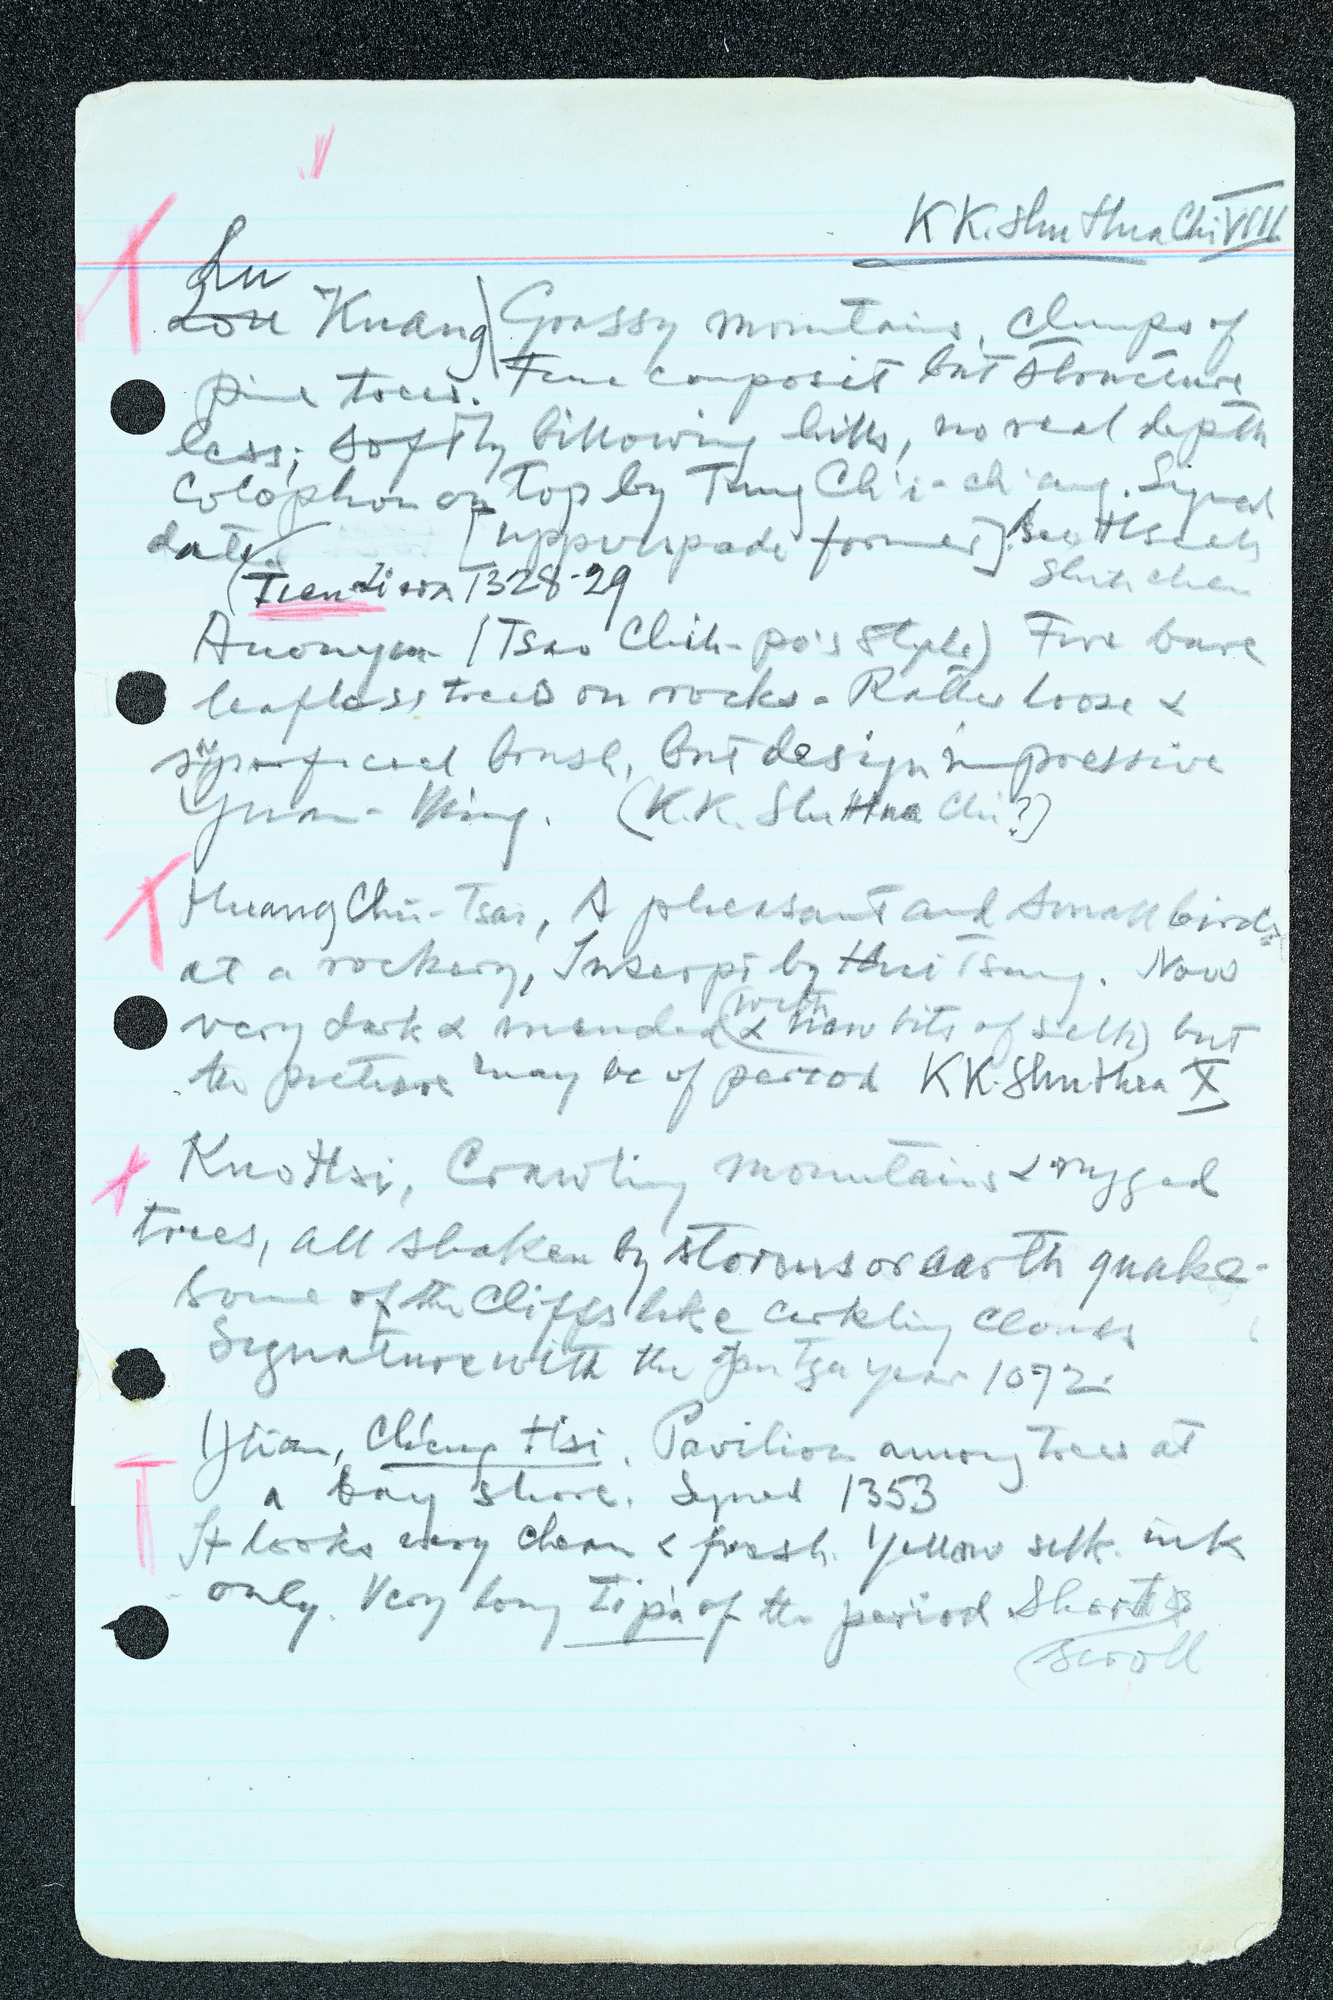 K K. Shu Hua Chi VIII
Lu
Lou Kuang) Grassy mountains, clumps of
pine trees. Fine composit but structure
less; softly billowing hills, no real depth
Colophon on top by Tung Ch'i-ch'ang. Signed
dated [upper part former] See Hsieh
Shih chen
(Tien Li era 1328-29
Anonym (Tsao Chih-po's style) Five bare
leafless trees on rocks. Rather loose &
superficial brush, but design impressive
Yuan-Ming. (K.K. Shu Hua Chi?)
Huang Chü-Tsai, A pheasant and small birds
at a rockery, Inscript by Hui Tsung. Now
very dark & mended (with & new bits of silk) but
the picture may be of period KK. Shu Hua X
Kuo Hsi, Crawling mountains & rugged
trees, all shaken by storms or earth quake-
Some of the cliffs like circling clouds
Signature with the Jen Tzu year 1072.
Yüan, Cheng Hsi. Pavilion among trees at
a bay shore. Signed 1353
It looks very clean & fresh. Yellow silk. ink
only. Very long Ti pa of the period Short
scroll